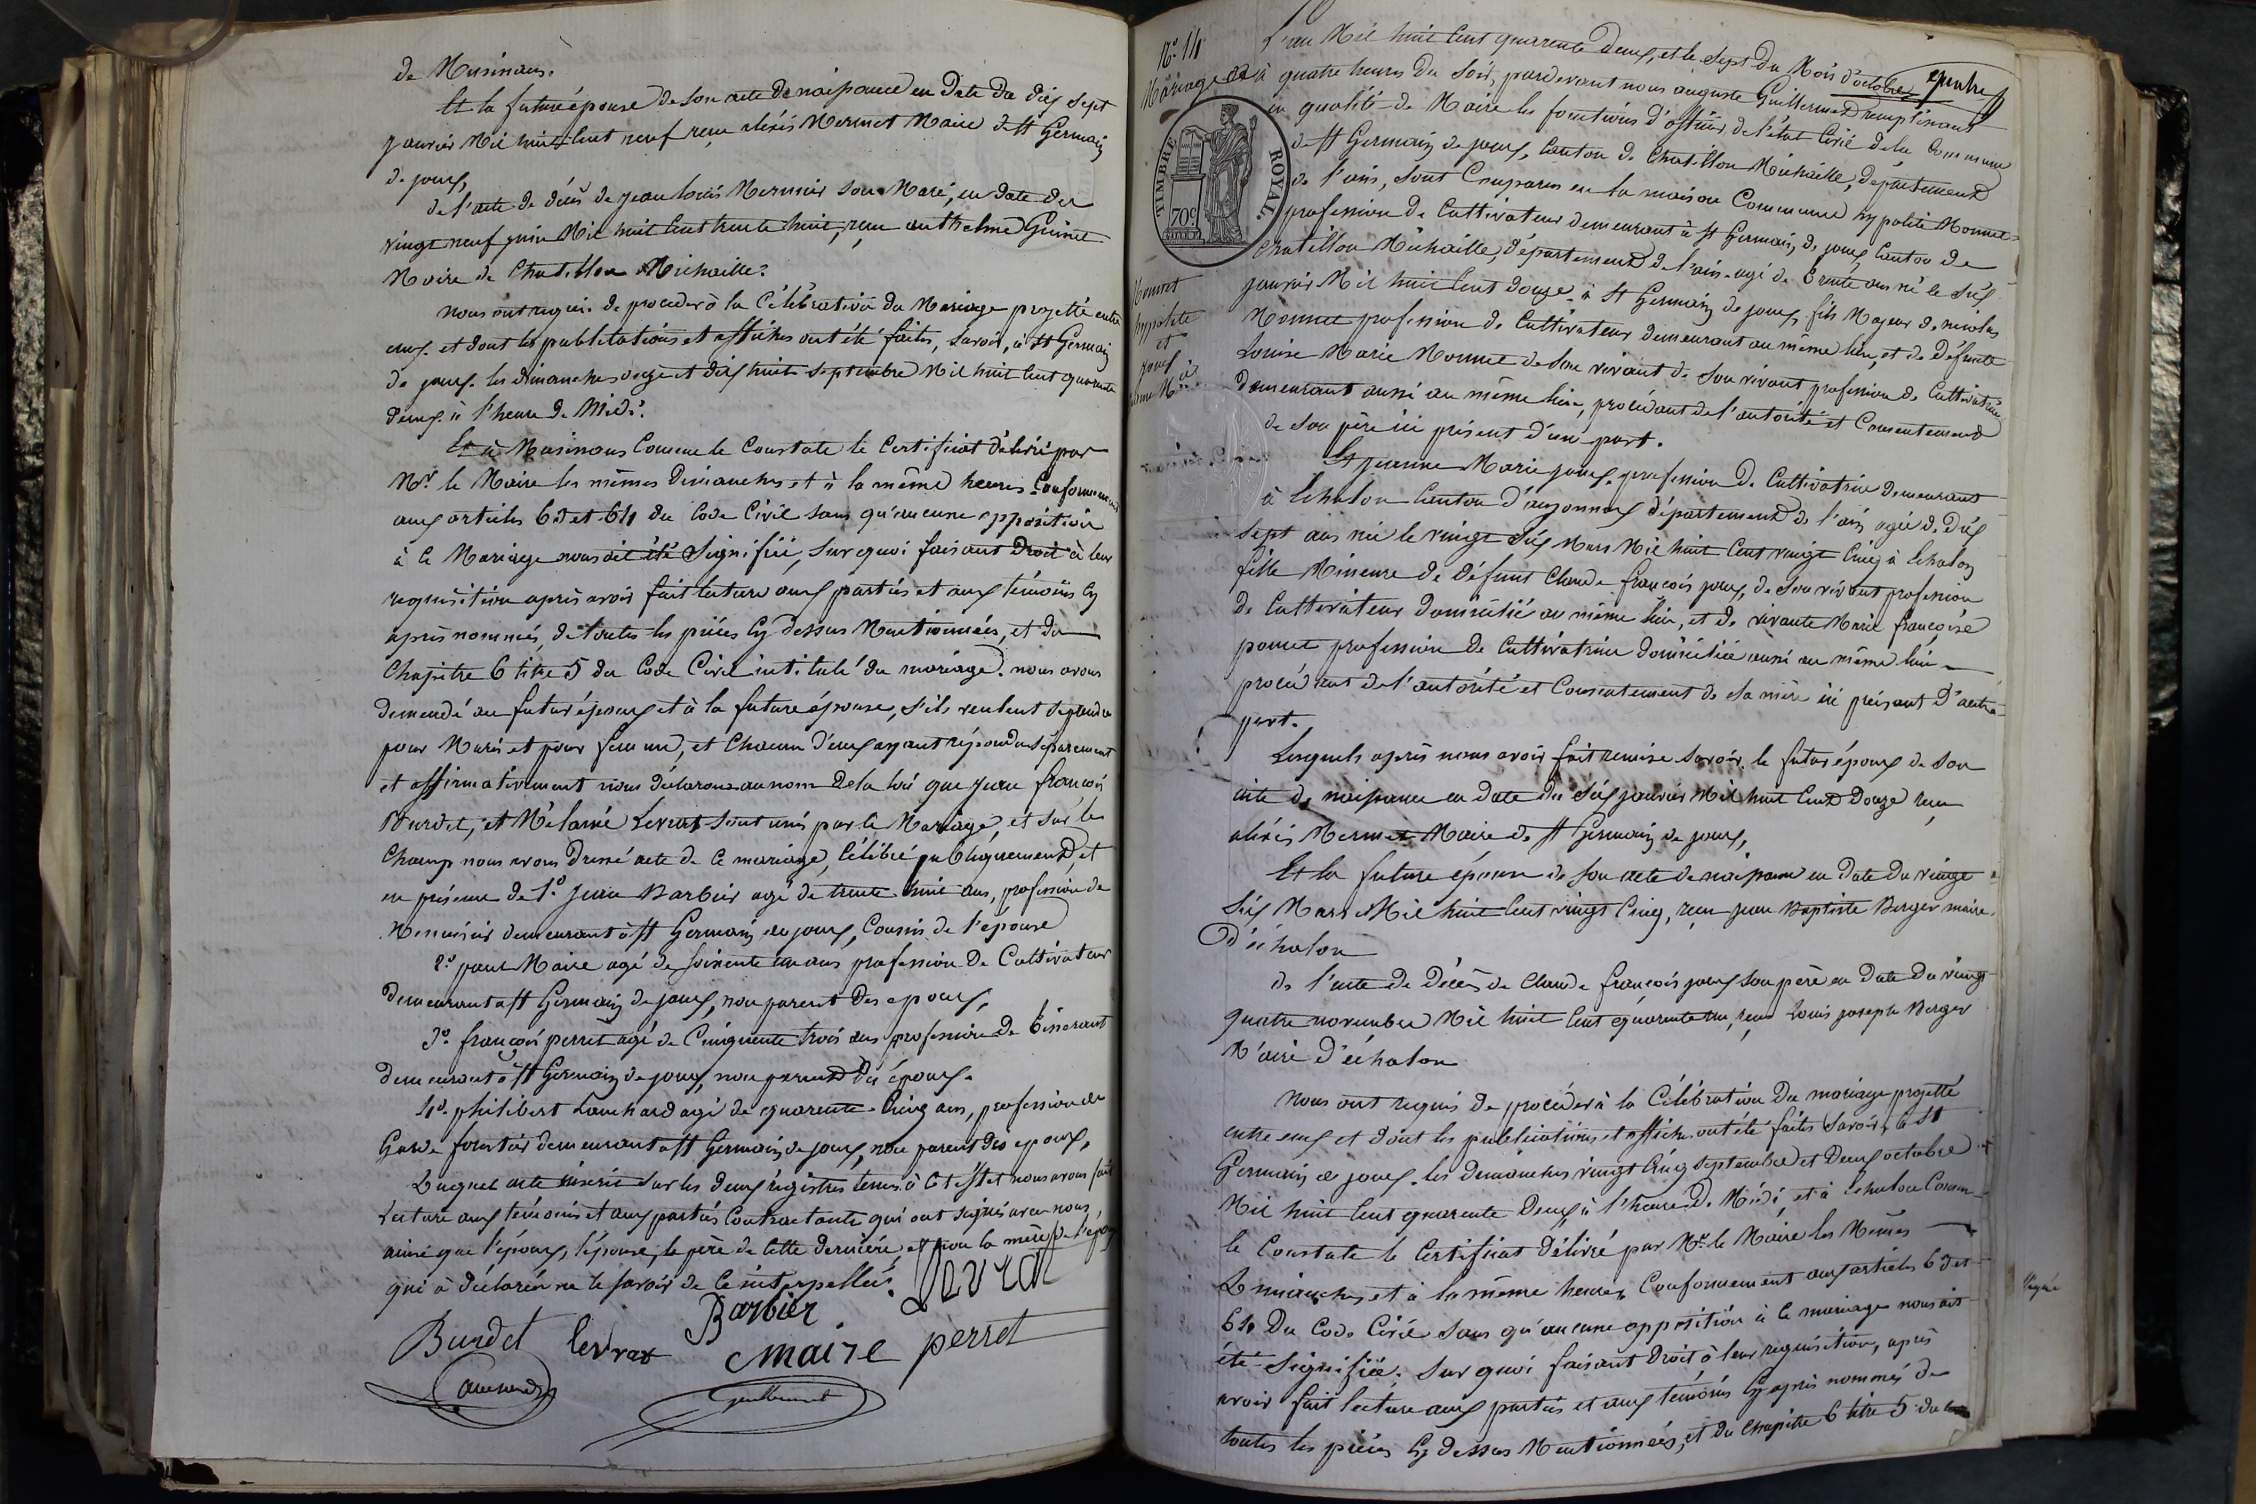 de Musinans.
Et la future épouse de son acte de naissance en date du dix sept
janvier Mil huit cent neuf reçu alexis Mermet Maire de St Germain
de joux,
de l'acte de décès de jean louis Mermier son Mari, en date du
vingt neuf juin Mil huit cent trente huit, reçu anthelme Guinet
Maire de Chatillon Michaille.
nous ont requis de proceder à la Célébration du Mariage projetté entre
eux et dont les publications et affiches ont été faites, savoir, à St Germain
de joux les dimanches onze et dix huit septembre Mil huit cent quarante
deux à l'heure de Midi.
Et à Musinans Comme le Constate le Certificat délivré par
Mr le Maire les mêmes Dimanches et à la même heures Conformement
aux articles 63 et 64 du Code Civil sans qu'aucune opposition
à ce Mariage nous ait été Signifiée, sur quoi faisant Droit à leur
requisition après avoir fait lecture aux parties et aux témoins Cy
après nommés, de toutes les pièces Cy dessus Mentionnées, et du
Chapitre 6 titre 5 du Code Civil intitulé du mariage. nous avons
demandé au futur époux et à la future épouse, s'ils veulent se prendre
pour Maris et pour femme, et Chacun d'eux ayant répondu séparement
et affirmativement nous déclarons au nom de la loi que jean françois
Burdet, et Mélanie Levrat sont unis par le Mariage, et sur le
Champ nous avons Dressé acte de ce mariage, Célébré publiquement, et
en présence de 1o Jean Barbier agé de trente huit ans, profession de
Menuisier demeurant à St Germain de joux, Cousin de l'épouse
2o paul Maire agé de soixente un ans profession De Cultivateur
demeurant à St Germain de joux, non parent des epoux,
3o françois perret agé de Cinquente trois ans profession de Tisserant
demeurant à St Germain de joux, non parent des époux.
4o philibert Louchard agé de quarente Cinq ans, profession de
Garde forestier demeurant à St Germain de joux, non parent des epoux,
Duquel acte inscrit sur les deux régistres tenus à Cet effet nous avons fait
Lecture aux temoins et aux parties Contractante qui ont signés avec nous
ainsi que l'époux, l'épouse, le père de Cette dernière, et non la mère de l'époux
qui à déclarée ne le savoir de ce interpellée.
Levrat
Barbier
Burdet levrat Maire perret
No 14
Mariage
Monnet
hyppolite
et
joux
L'an Mil huit cent quarente deux, et le sept du Mois d'octobre
à quatre heures du soir, pardevant nous auguste Guillermet remplissant
en qualité de Maire les fonctions d'officier de l'état Civil de la Commune
de St Germain de joux, Canton de Chatillon Michaille, département
de l'ain, sont Comparus en la maison Commune hypolite Monnet
profession de Cultivateur demeurant à St Germain de joux Canton de
Chatillon Michaille, département de l'ain agé de Trente ans né le six
janvier Mil huit cent douze à St Germain de joux, fils Majeur de nicolas
Monnet profession de Cultivateur demeurant au même lieu, et de Défunte
Louise Marie Monnet de son vivant de son vivant profession de Cultivatrice
demeurant aussi au même lieu, procédant de l'autorité et Consentement
de son père ici présent d'une part.
Et jeanne Marie joux profession de Cultivatrice demeurant
à Echalon Canton d'oyonnax département de l'ain agée de Dix
sept ans née le vingt six Mars Mil huit Cent vingt Cinq à Echalon
fille Mineure de Défunt Claude françois joux, de son vivant profession
de Cultivateur domicilié au même lieu, et de vivante Marie françoise
poncet profession de Cultivatrice domiciliée aussi au même lieu
procédant de l'autorité et Consentement de sa mère ici présent d'autre
part.
Lesquels après nous avoir fait remise savoir, le futur époux de son
acte de naissance en date du six janvier Mil huit Cent Douze reçu
alexis Mermet Maire de St Germain de joux,
Et la future épouse de son acte de naissance en date du vingt
six Mars Mil huit Cent vingt Cinq, reçu jean Baptiste Berger maire
D'échalon
de l'acte de Décès de Claude françois joux son père en date du vingt
quatre novembre Mil huit Cent quarente un, reçu Louis joseph Berger
Maire d'échalon
Nous ont requis de procéder à la Célébration du mariage projetté
entre eux et dont les publications et affiches ont été faites savoir, à St
Germain de joux les dimanches vingt Cinq septembre et Deux octobre
Mil huit Cent quarente Deux, à l'heure de Midi, et à Echalon Comme
le Constate le Certificat Délivré par Mr le Maire les Mêmes
Dimanches et à la même heures Conformement aux articles 63 et
64 Du Code Civil sans qu'aucune opposition à ce mariage nous ait
été Signifiée, Sur quoi faisant Droit à leur requisition, après
avoir fait lecture aux parties et aux temoins Cy après nommés de
toutes les pièces Cy dessus Mentionnées, et du Chapitre 6 titre 5 du
TIMBRE ROYAL.
70c